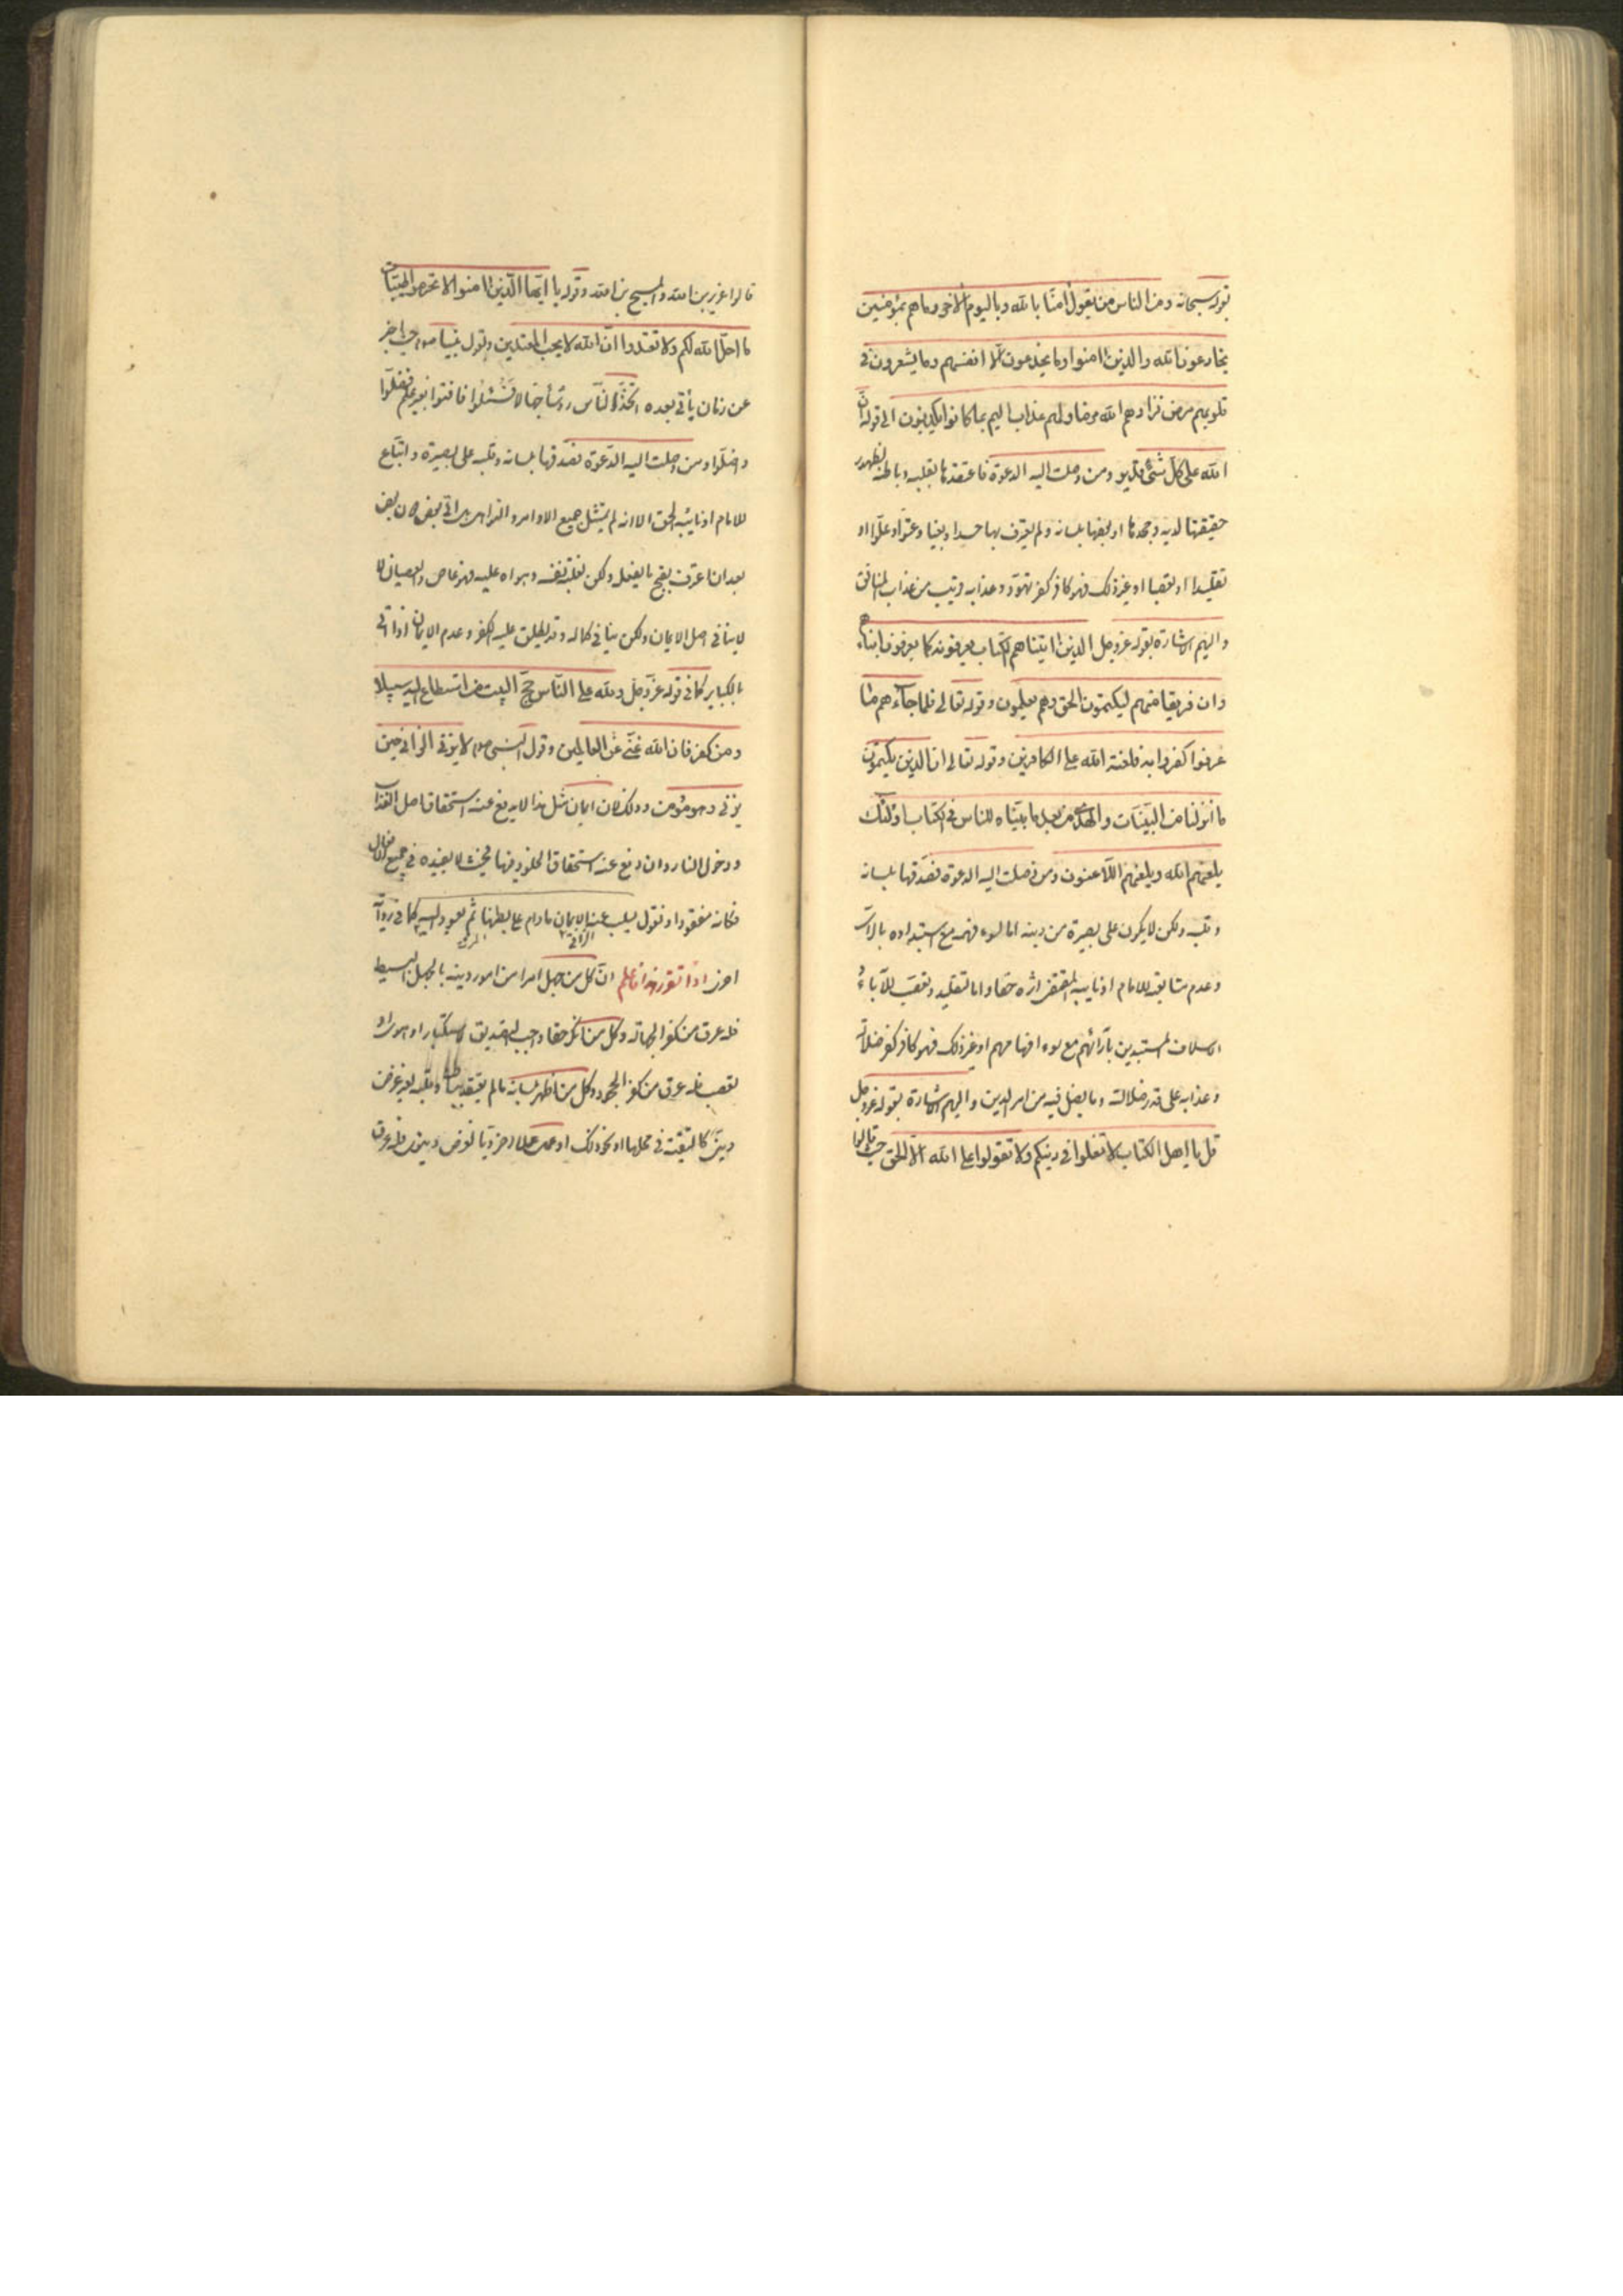 بقوله سبحانه ومن الناس من يقول امنا بالله وباليوم الاخر وما هم بمؤمنين
يخادعون الله والذين امنوا وما يخدعون الا انفسهم وما يشعرون في
قلوبهم مرض فزادهم الله مرضا ولهم عذاب اليم بما كانوا يكذبون الى قوله ان
الله على كل شئ قدير ومن وصلت اليه الدعوة فاعتقدها بقلبه وباطنه لظهور
حقيقتها لديه وجحدها او بعضها بلسانه ولم يعترف بها حسدا وبغيا وعتوا وعلوا او
تقليدا او تعصبا او غير ذلك فهو كافر كفر تهود وعذابه قريب من عذاب المنافق
واليهم الاشارة بقوله عز وجل الذين اتيناهم الكتاب يعرفونه كما يعرفون ابناءهم
وان فريقا منهم ليكتمون الحق وهم يعلمون وقوله تعالى فلما جاءهم ما
عرفوا كفروا به فلعنة الله على الكافرين وقوله تعالى ان الذين يكتمون
ما انزلنا من البينات والهدى من بعد ما بيناه للناس في الكتاب اولئك
يلعنهم الله ويلعنهم اللاعنون ومن وصلت اليه الدعوة فصدقها بلسانه
وقلبه ولكن لا يكون على بصيرة من دينه اما لسوء فهمه مع استبداده بالراى
وعدم متابعته للامام او نايبه المقتفى اثره حقا واما لتقليد وتعصب للآباء
والاسلاف المستبدين بآرائهم مع سوء افهامهم او غير ذلك فهو كافر كفر ضلالة
وعذابه على قدر ضلالته وما يضل فيه من امر الدين واليهم الاشارة بقوله عز وجل
قل يا اهل الكتاب لا تغلوا في دينكم ولا تقولوا على الله الا الحق حيث قالوا
قالوا عزير بن الله والمسيح بن الله وقوله يا ايها الذين امنوا لا تحرموا طيبات
ما احل الله لكم ولا تعتدوا ان الله لا يحب المعتدين وبقول نبينا صم حيث اخبر
عن زمان يأتي بعده اتخذ الناس رؤسا جهالا فسئلوا فافتوا بغير علم فضلوا
واضلوا ومن وصلت اليه الدعوة فصدقها بلسانه وقلبه على بصيرة واتباع
للامام او نايبه الحق الا انه لم يمتثل جميع الاوامر والنواهى بل اتى ببعض دون بعض
بعد ان اعترف بقبح ما يفعله ولكن لغلبة نفسه وهواه عليه فهو عاص والعصيان لا
ينافى اصل الايمان ولكن ينافى كماله وقد يطلق عليه الكفر وعدم الايمان اذا اتى
بالكباير كما في قوله عز وجل ولله على الناس حج البيت من استطاع اليه سبيلا
ومن كفر فان الله غني عن العالمين وقول النبى صم لا يزنى الزانى حين
يزنى وهو مؤمن وذلك لان ايمان مثل هذا لا يدفع عنه استحقاق اصل العذاب
ودخول النار وان دفع عنه استحقاق الخلود فيها فحيث لا يفيده في جميع الاحوال
فكانه مفقود او نقول يسلب عنه الايمان ما دام على بطنها ثم يعود اليه كما في رواية
اخرى اذا تقرر هذا فاعلم ان كل من جهل امرا من امور دينه بالجهل البسيط
فله عرق من كفر الجهالة وكل من انكر حقا واجب التصديق لاستكبار او هوى او
تعصب فله عرق من كفر الجحود وكل من اظهر بلسانه ما لم يعتقد بباطنه وقلبه لغير غرض
دينى كالتقية في محلها او نحو ذلك او عمل عملا اخرويا لغرض دنيوى فله عرق